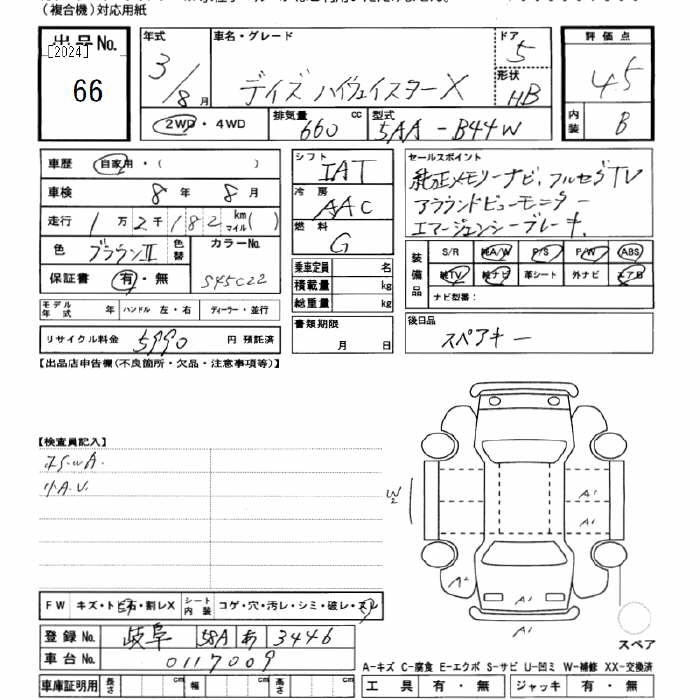 (複合機)対応用紙
出品No.
[2024]
66
年式
3/8月
車名・グレード
デイズ ハイウェイスターX
ドア
5
形状
HB
2WD・4WD
排気量
660 cc
型式
5AA-B44W
評価点
4.5
内装
B
車歴 自家用・( )
車検 8年 8月
走行 1万2千182 km マイル( )
色 ブラウンII 色替
カラーNo.
S45C22
保証書 有・無
モデル年式 年 ハンドル 左・右 ディーラー・並行
リサイクル料金 5990 円 預託済
シフト
IAT
冷房
AAC
燃料
G
乗車定員 名
積載量 kg
総重量 kg
書類期限
月 日
セールスポイント
純正メモリーナビ、フルセグTV
アラウンドビューモニター
エマージェンシーブレーキ
装備品
S/R 純A/W P/S P/W ABS
純TV 純ナビ 革シート 外ナビ エアB
ナビ型番:
後日品
スペアキー
【出品店申告欄(不良箇所・欠品・注意事項等)】
【検査員記入】
小A.U.
W2
A1
A1
A2
A1
A1
スペア
FW キズ・トビ石・割レX シート内装 コゲ・穴・汚レ・シミ・破レ・スレ
登録No. 岐阜 58A あ 3446
車台No. 0117009
車庫証明用 長さ cm 幅 cm 高さ cm
A-キズ C-腐食 E-エクボ S-サビ U-凹ミ W-補修 XX-交換済
工具 有・無 ジャッキ 有・無